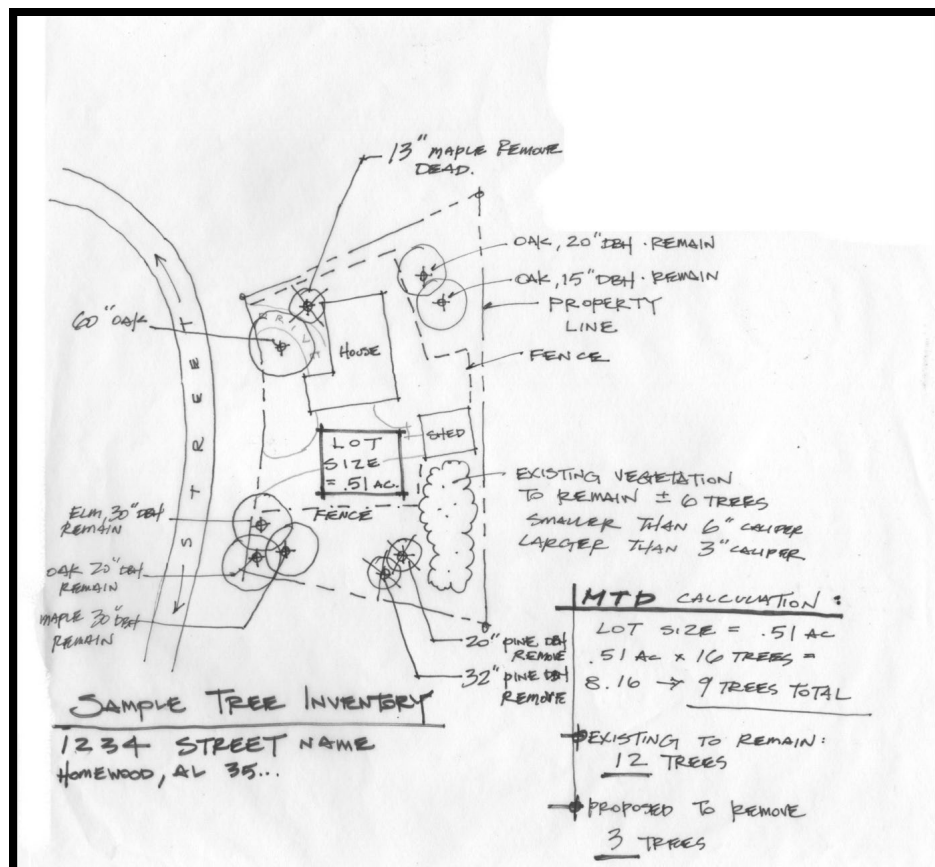 13" MAPLE REMOVE
DEAD.
OAK, 20" DBH · REMAIN
OAK, 15" DBH · REMAIN
PROPERTY
LINE
FENCE
60" OAK
DRIVE
HOUSE
STREET
SHED
LOT
SIZE
= .51 AC.
FENCE
EXISTING VEGETATION
TO REMAIN ± 6 TREES
SMALLER THAN 6" CALIPER
LARGER THAN 3" CALIPER
ELM, 30" DBH
REMAIN
OAK 20" DBH
REMAIN
MAPLE 30" DBH
REMAIN
20" PINE DBH
REMOVE
32" PINE DBH
REMOVE
MTD CALCULATION:
LOT SIZE = .51 AC
.51 AC x 16 TREES =
8.16 → 9 TREES TOTAL
EXISTING TO REMAIN:
12 TREES
PROPOSED TO REMOVE
3 TREES
SAMPLE TREE INVENTORY
1234 STREET NAME
HOMEWOOD, AL 35...